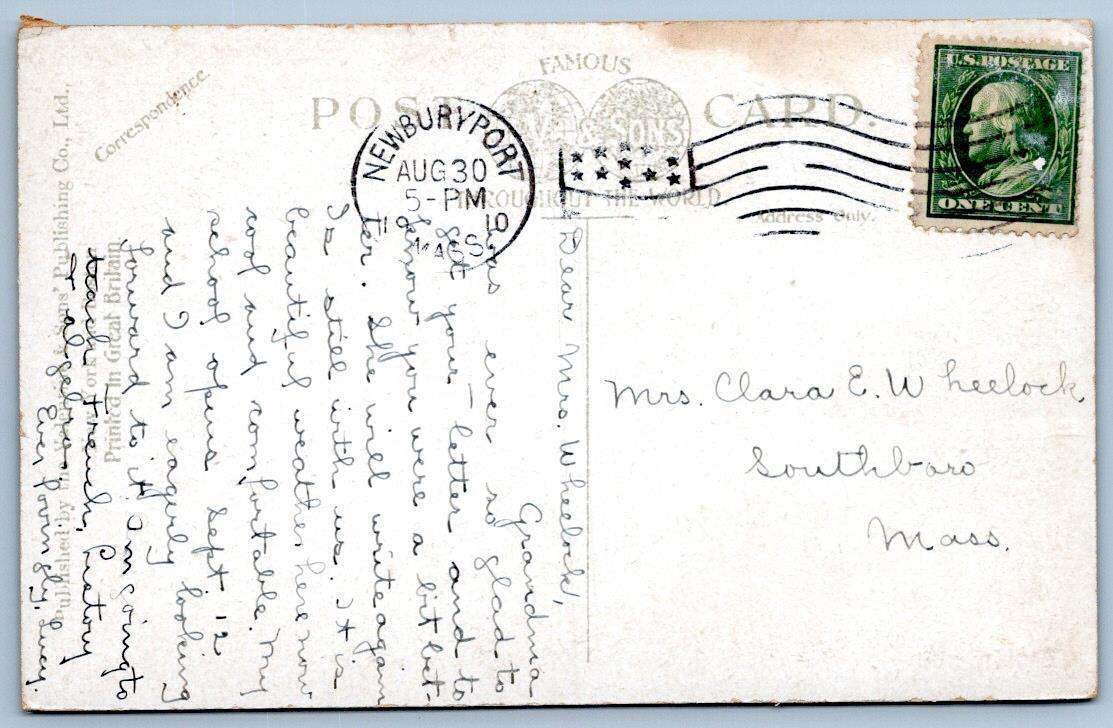 FAMOUS
POST CARD.
& SONS
THROUGHOUT THE WORLD
Correspondence.
Address Only.
Published by the Valentine & Sons' Publishing Co., Ltd.,
New York
Printed in Great Britain
NEWBURYPORT
AUG 30
5-PM
1910
MASS
U.S. POSTAGE
ONE CENT
Mrs. Clara E. Wheelock
Southboro
Mass.
Dear Mrs. Wheelock,
Grandma
was ever so glad to
get your letter and to
know you were a bit bet-
ter. She will write again
is still with us. It is
beautiful weather here now
cool and comfortable. My
school opens Sept 12
and I am eagerly looking
forward to it. Im going to
teach French, History
& algebra.
Ever lovingly, Lucy.